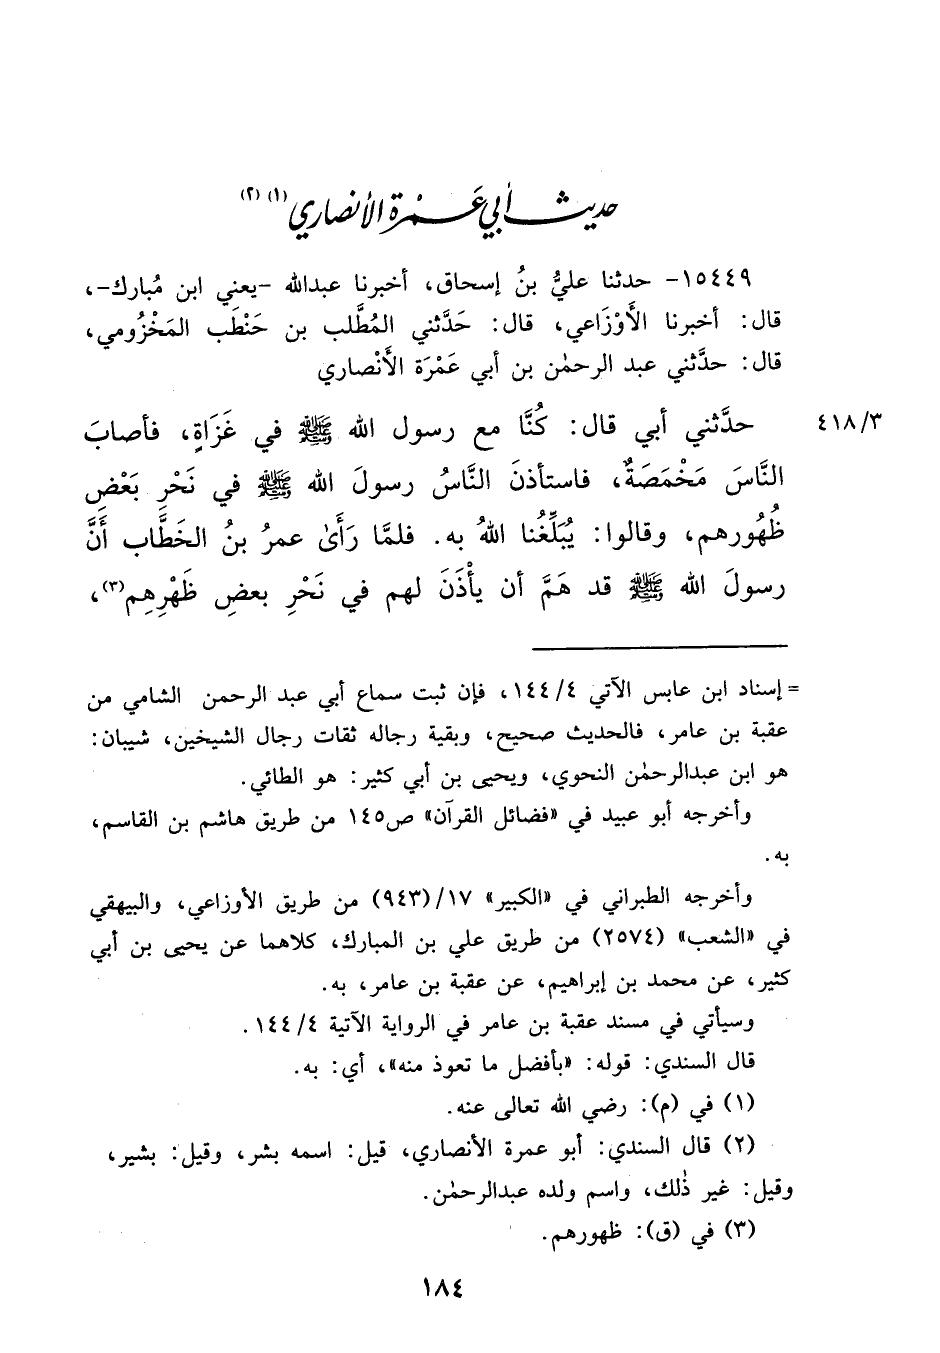 حديث أبي عَمْرة الأنصاري(١)(٢)
١٥٤٤٩- حدثنا عليُّ بنُ إسحاق، أخبرنا عبدالله -يعني ابن مُبارك-،
قال: أخبرنا الأَوْزَاعي، قال: حَدَّثني المُطَّلب بن حَنْطَب المَخْزُومي،
قال: حدَّثني عبد الرحمٰن بن أبي عَمْرَة الأَنْصاري
٤١٨/٣ حدَّثني أبي قال: كُنَّا مع رسول الله ﷺ في غَزَاةٍ، فأصابَ
النَّاسَ مَخْمَصَةٌ، فاستأذنَ النَّاسُ رسولَ الله ﷺ في نَحْرِ بَعْضِ
ظُهُورِهم، وقالوا: يُبَلِّغُنا اللهُ به. فلمَّا رَأَىٰ عمرُ بنُ الخَطَّاب أَنَّ
رسولَ الله ﷺ قد هَمَّ أن يأْذَنَ لهم في نَحْرِ بعضِ ظَهْرِهِم(٣)،
= إسناد ابن عابس الآتي ١٤٤/٤، فإن ثبت سماع أبي عبد الرحمن الشامي من
عقبة بن عامر، فالحديث صحيح، وبقية رجاله ثقات رجال الشيخين، شيبان:
هو ابن عبدالرحمٰن النحوي، ويحيى بن أبي كثير: هو الطائي.
وأخرجه أبو عبيد في «فضائل القرآن» ص١٤٥ من طريق هاشم بن القاسم،
به.
وأخرجه الطبراني في «الكبير» ١٧/(٩٤٣) من طريق الأوزاعي، والبيهقي
في «الشعب» (٢٥٧٤) من طريق علي بن المبارك، كلاهما عن يحيى بن أبي
كثير، عن محمد بن إبراهيم، عن عقبة بن عامر، به.
وسيأتي في مسند عقبة بن عامر في الرواية الآتية ١٤٤/٤.
قال السندي: قوله: «بأفضل ما تعوذ منه»، أي: به.
(١) في (م): رضي الله تعالى عنه.
(٢) قال السندي: أبو عمرة الأنصاري، قيل: اسمه بشر، وقيل: بشير،
وقيل: غير ذٰلك، واسم ولده عبدالرحمٰن.
(٣) في (ق): ظهورهم.
١٨٤